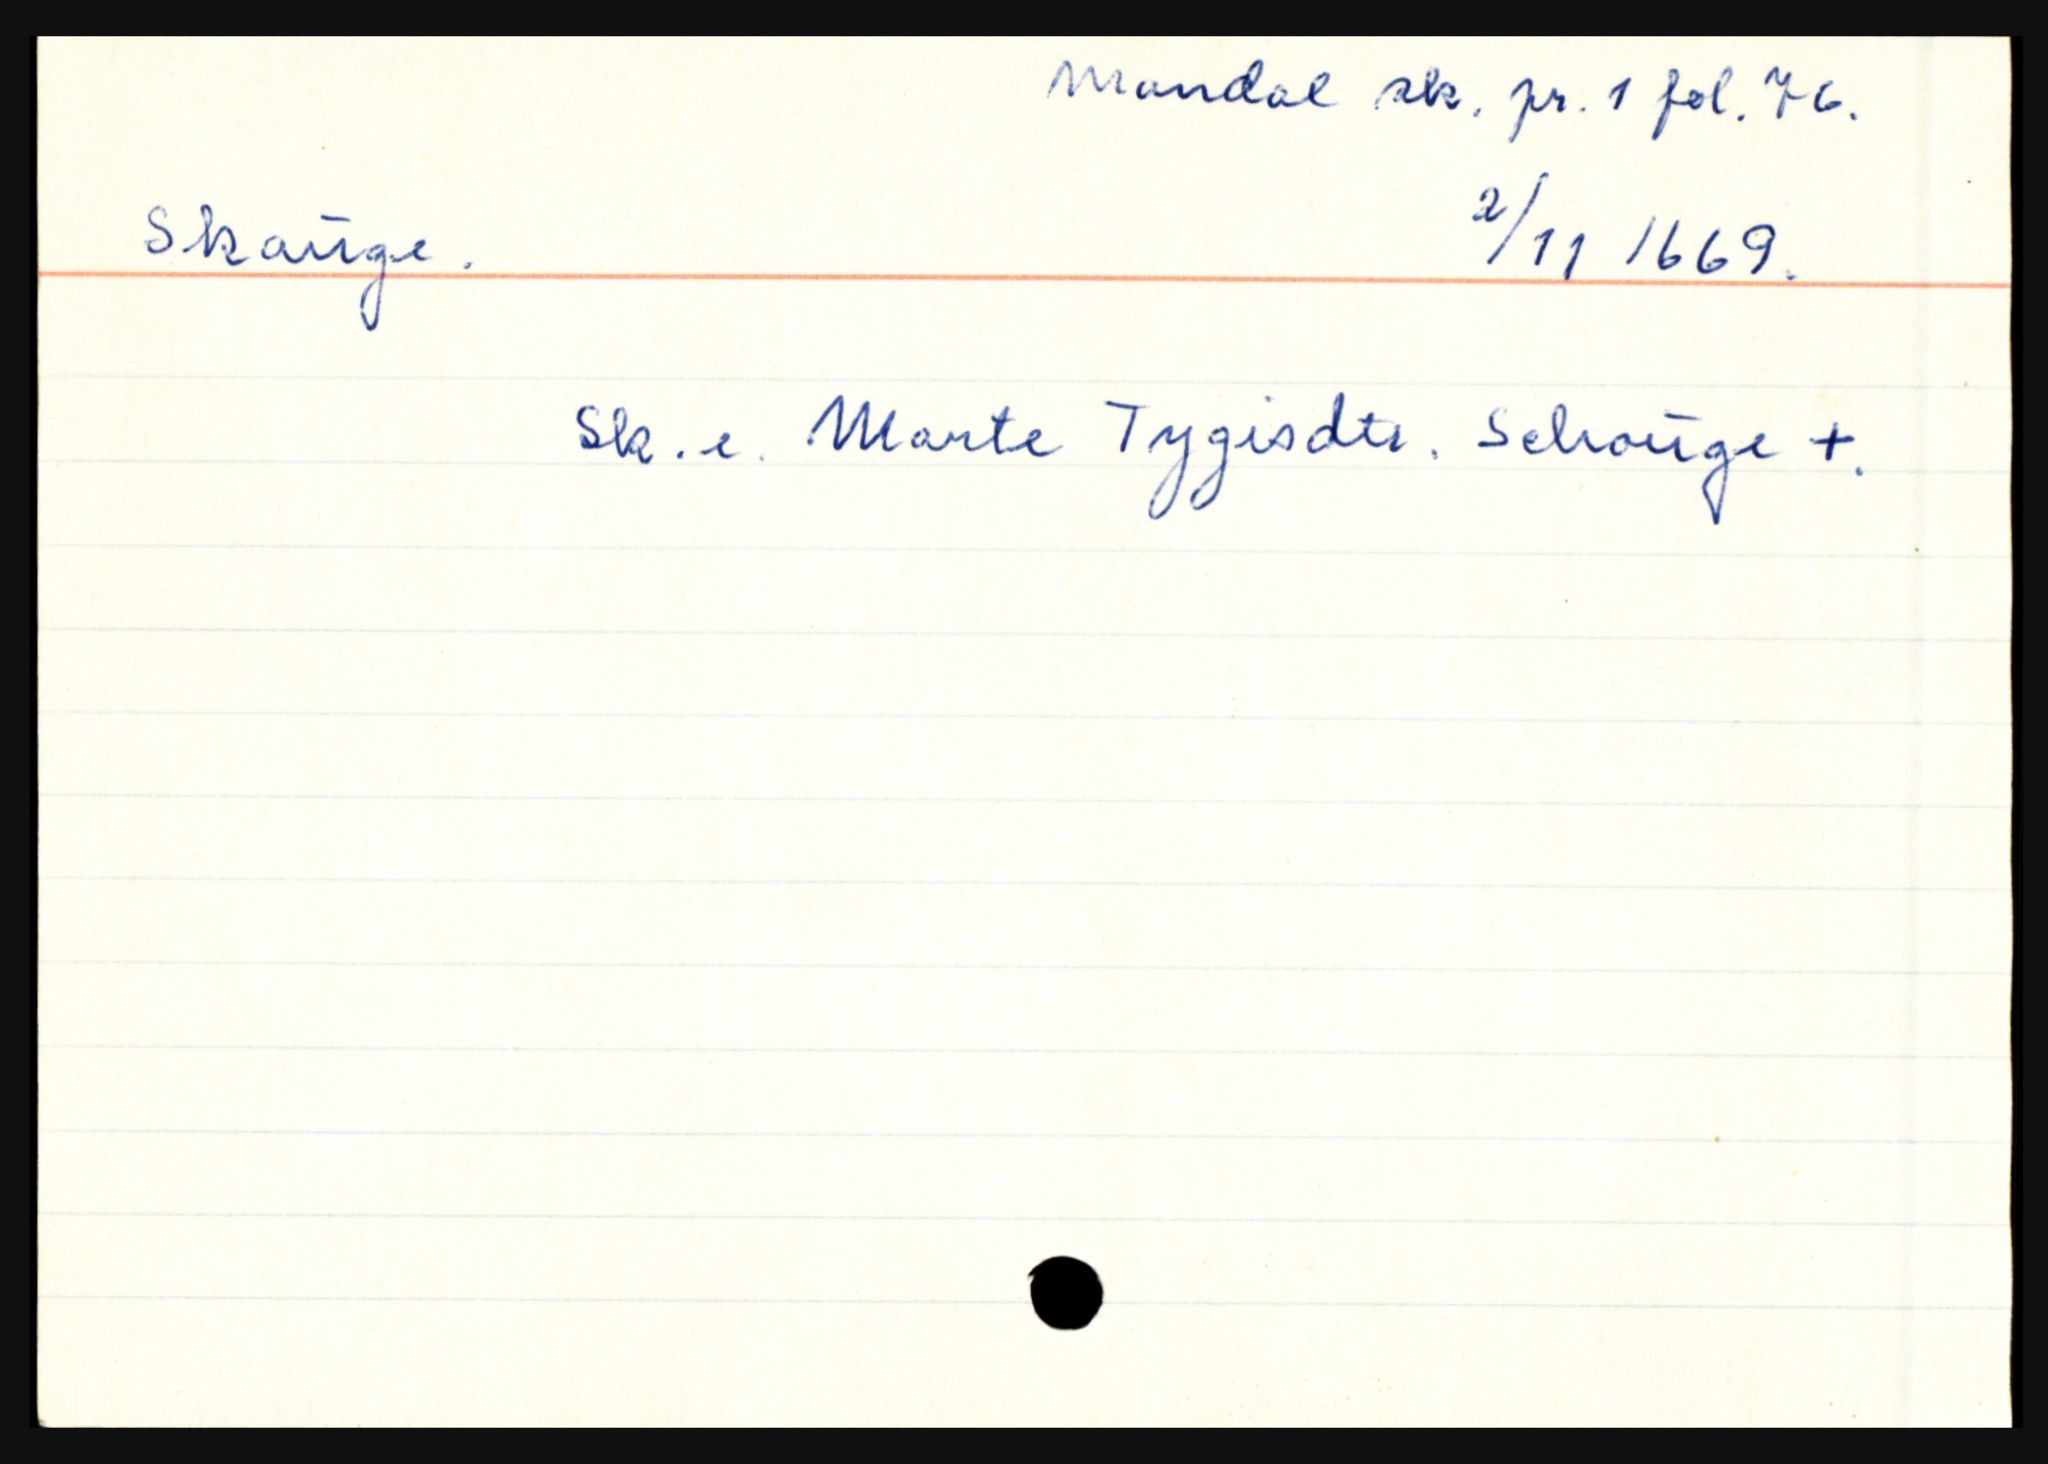 Mandal sk. pr. 1 fol. 76.
2/11 1669.
Skaŭge.
Sk. e. Marte Tygisdtr. Schaŭge +.